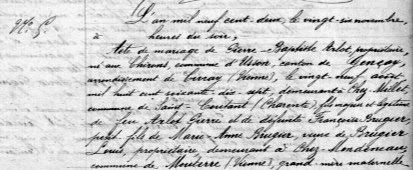 N° 5.
L'an mil neuf cent deux, le vingt-six novembre,
à heures du soir,
Acte de mariage de Pierre-Baptiste Arlot, propriétaire,
né aux commune d'Usson, canton de Gençay,
arrondissement de Civray (Vienne), le vingt-neuf août
mil huit cent soixante-dix-sept, demeurant à Chez-Millet
commune de Saint-Coutant (Charente), fils majeur et légitime
de feu Arlot Pierre et de défunte Françoise Brugier,
petit-fils de Marie-Anne Brugier, veuve de Brugier
Louis, propriétaire, demeurant à Chez-Mondonneau
commune de Mouterre (Vienne), grand-mère maternelle